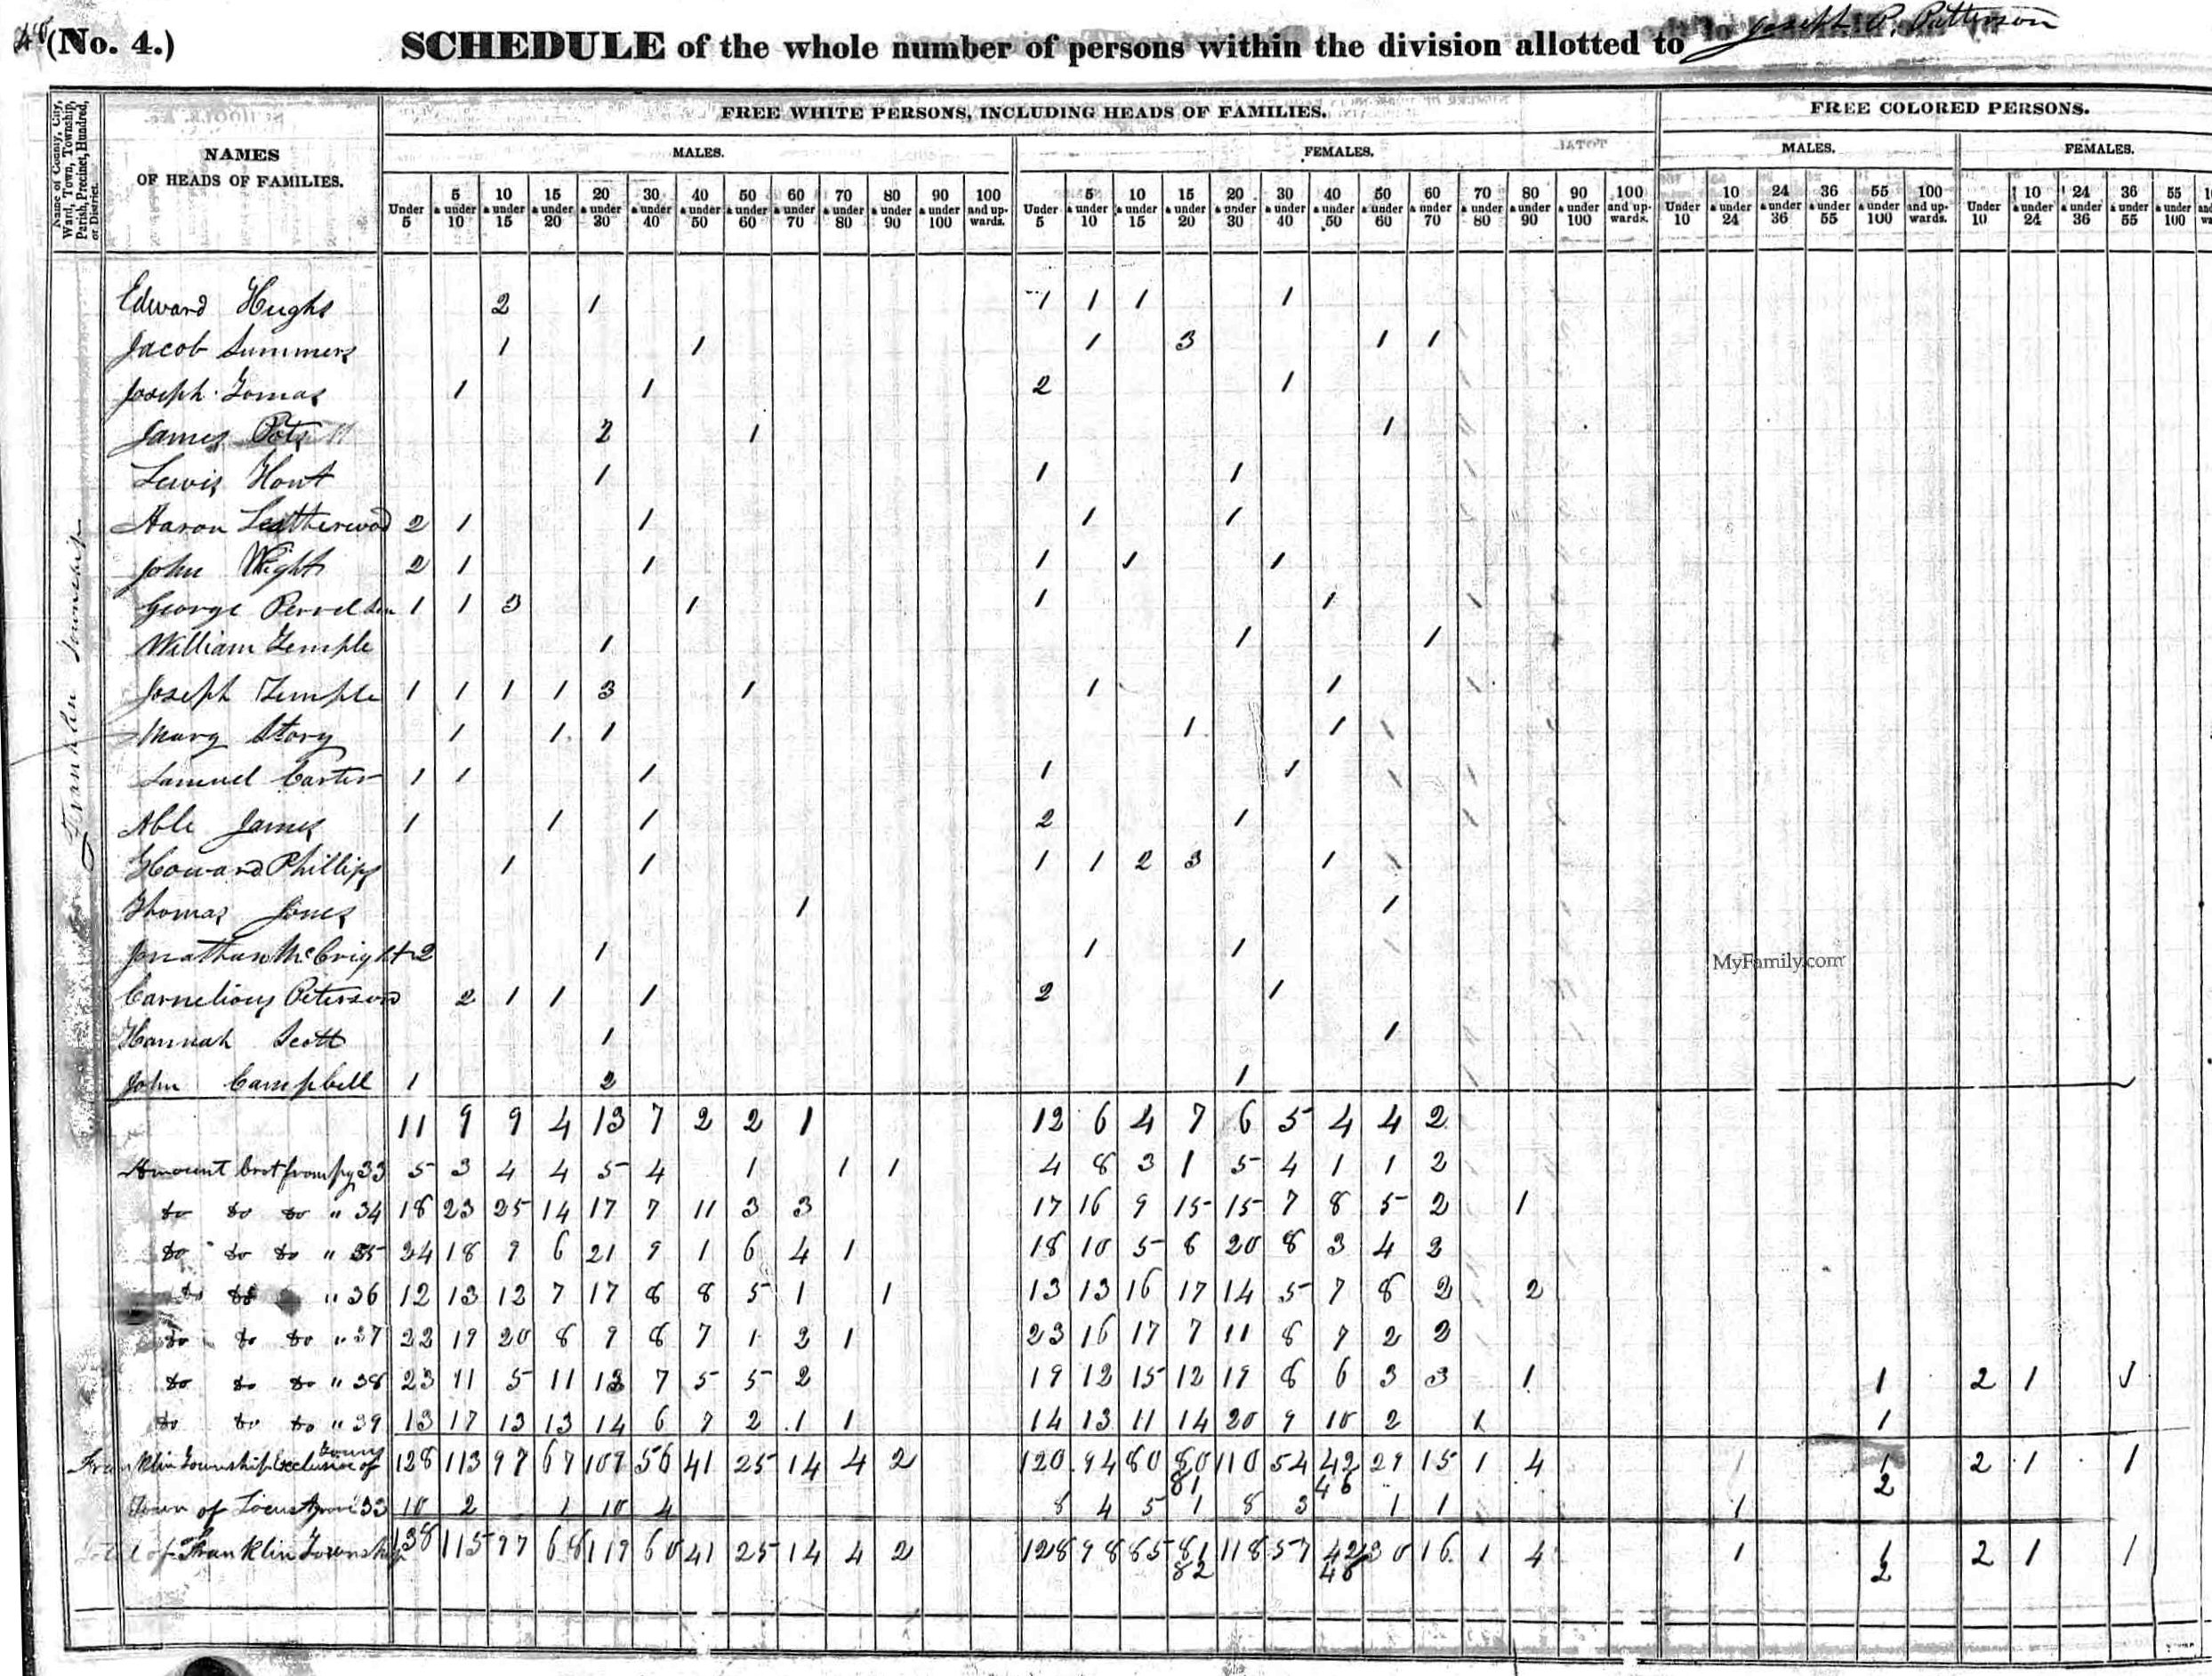 48 (No. 4.) SCHEDULE of the whole number of persons within the division allotted to Joseph P. Patterson
FREE WHITE PERSONS, INCLUDING HEADS OF FAMILIES. FREE COLORED PERSONS.
Name of County, City, Ward, Town, Township, Parish, Precinct, Hundred, or District.
NAMES OF HEADS OF FAMILIES.
MALES. FEMALES. MALES. FEMALES.
Under 5 5 & under 10 10 & under 15 15 & under 20 20 & under 30 30 & under 40 40 & under 50 50 & under 60 60 & under 70 70 & under 80 80 & under 90 90 & under 100 100 and upwards. Under 5 5 & under 10 10 & under 15 15 & under 20 20 & under 30 30 & under 40 40 & under 50 50 & under 60 60 & under 70 70 & under 80 80 & under 90 90 & under 100 100 and upwards. Under 10 10 & under 24 24 & under 36 36 & under 55 55 & under 100 100 and upwards. Under 10 10 & under 24 24 & under 36 36 & under 55 55 & under 100
Franklin Township
Edward Hughs 2 1 1 1 1 1
Jacob Summers 1 1 1 3 1 1
Joseph Tomas 1 1 2 1
James Pots 2 1 1
Lewis Hout 1 1 1
Aaron Leatherwood 2 1 1 1 1
John Wright 2 1 1 1 1 1
George 1 1 3 1 1 1
William Temple 1 1 1
Joseph Temple 1 1 1 1 3 1 1 1
Mary Story 1 1 1 1 1
Samuel Carter 1 1 1 1 1
Able James 1 1 1 2 1
Howard Phillips 1 1 1 1 2 3 1
Thomas Jones 1 1
Jonathan McCright 2 1 1 1
Carnelious Peterson 2 1 1 1 2 1
Hannah Scott 1 1
John Campbell 1 2 1
11 9 9 4 13 7 2 2 1 12 6 4 7 6 5 4 4 2
Amount brot from pg 33 5 3 4 4 5 4 1 1 1 4 8 3 1 5 4 1 1 2
do do do " 34 18 23 25 14 17 7 11 3 3 17 16 9 15 15 7 8 5 2 1
do do do " 35 24 18 9 6 21 9 1 6 4 1 18 10 5 8 20 8 3 4 2
do do " 36 12 13 12 7 17 8 8 5 1 1 13 13 16 17 14 5 7 8 2 2
do do do " 37 22 19 20 8 9 8 7 1 2 1 23 16 17 7 11 8 7 2 2
do do do " 38 23 11 5 11 13 7 5 5 2 19 12 15 12 19 8 6 3 3 1 1 2 1 1
do do do " 39 13 17 13 13 14 6 7 2 1 1 14 13 11 14 20 9 10 2 1 1
Franklin Township Exclusive of Towns 128 113 97 67 109 56 41 25 14 4 2 120 94 80 80 110 54 42 29 15 1 4 1 1 2 1 1
81 46 2
Town of Locust Grove 33 10 2 1 10 4 8 4 5 1 8 3 1 1 1
Total of Franklin Township 138 115 97 68 119 60 41 25 14 4 2 128 98 85 81 118 57 42 30 16 1 4 1 1 2 1 1
82 46 2
MyFamily.com